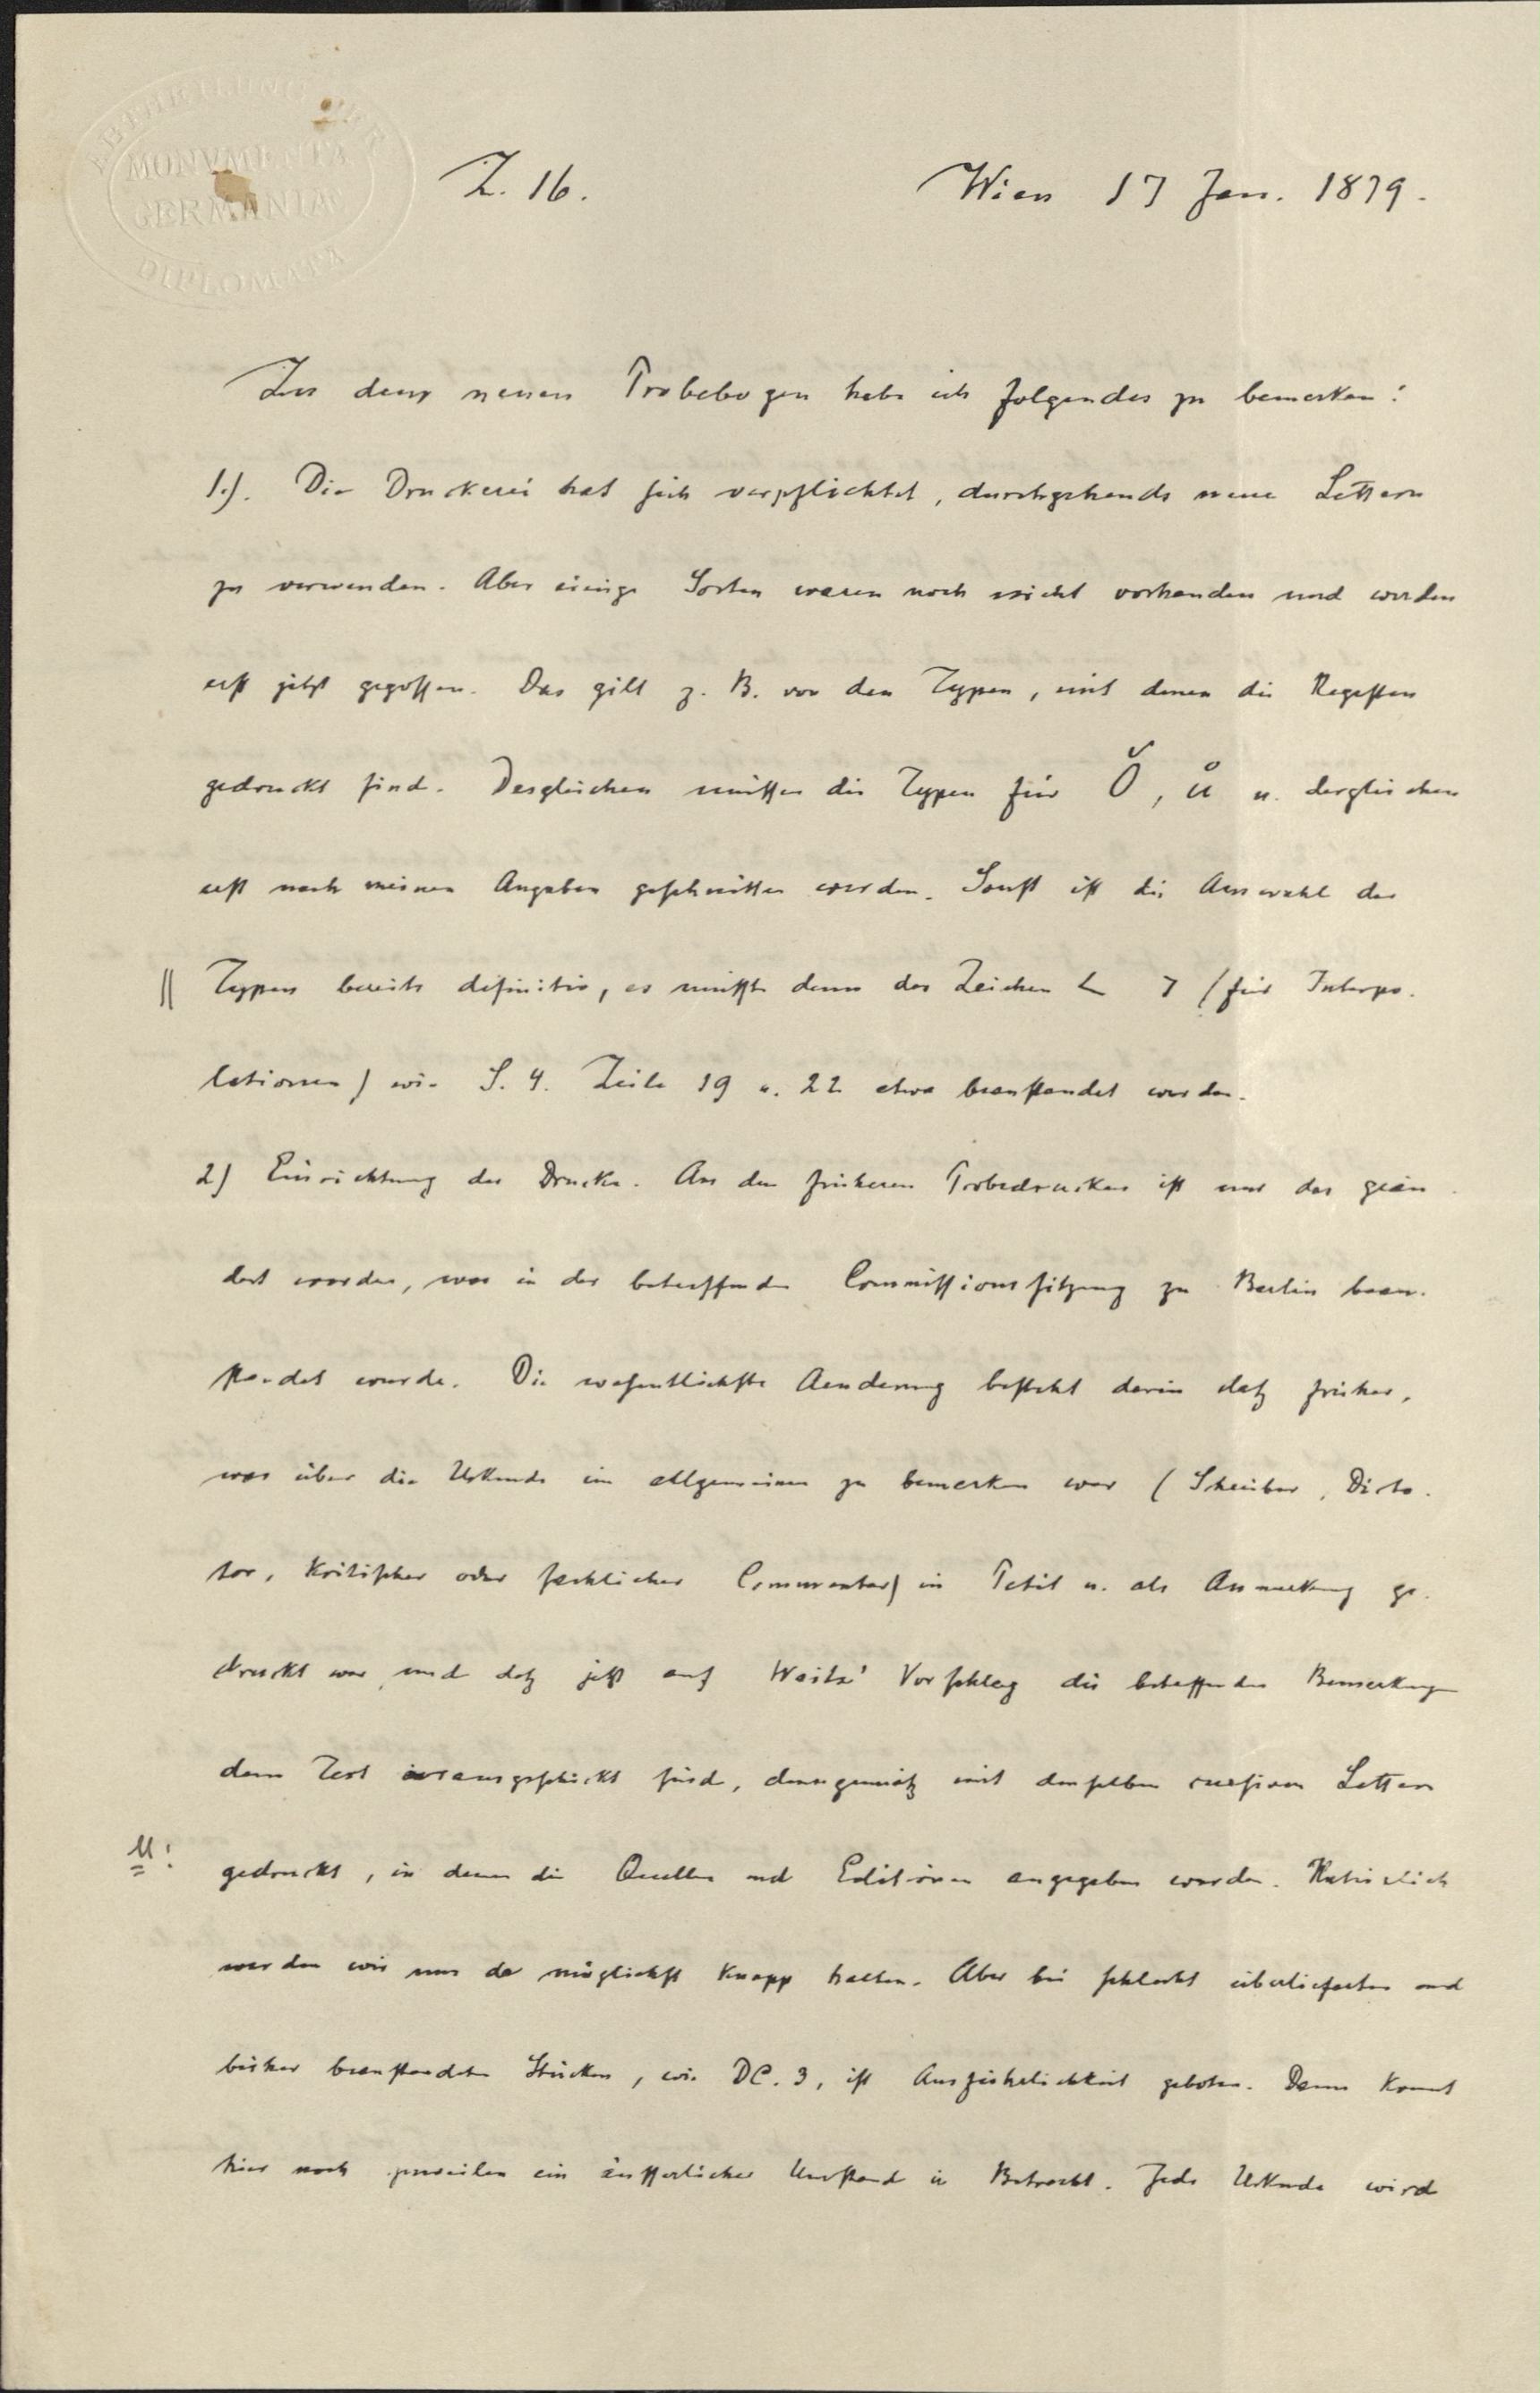 ABTHEILUNG DER
MONVMENTA
GERMANIAE
DIPLOMATA
Z. 16.
Wien 17 Jan. 1879.
Zu dem neuen Probebogen habe ich folgendes zu bemerken:
1.). Die Druckerei hat sich verpflichtet, durchgehends neue Lettern
zu verwenden. Aber einige Sorten waren noch nicht vorhanden und werden
erst jetzt gegossen. Das gilt z. B. von den Typen, mit denen die Regesten
gedruckt sind. Desgleichen müssen die Typen für Ǒ, ů u. dergleichen
erst nach meinen Angaben geschnitten werden. Sonst ist die Auswahl der
|| Typen bereits definitiv, es müsste denn das Zeichen (für Interpo-
lationen) wie S. 4. Zeile 19 u. 22 etwa beanstandet werden.
2) Einrichtung des Drucks. An den früheren Probedrucken ist nur das geän-
dert worden, was in der betreffenden Commissionssitzung zu Berlin bean-
standet wurde. Die wesentlichste Aenderung besteht darin datz früher,
was über die Urkunde im allgemeinen zu bemerken war (Schreiber, Dicta-
tor, kritischer oder sachlicher Commentar) in Petit u. als Anmerkung ge-
druckt war, und datz jetzt auf Waitz' Vorschlag die betreffenden Bemerkungen
dem Text vorausgeschickt sind, demgemätz mit denselben cursiven Lettern
gedruckt, in denen die Quellen und Editionen angegeben werden. Natürlich
werden wir uns da möglichst knapp halten. Aber bei schlecht überlieferten und
bisher beanstandeten Stücken, wie DC. 3, ist Ausführlichkeit geboten. Dann kommt
hier noch zuweilen ein äusserlicher Umstand in Betracht. Jede Urkunde wird